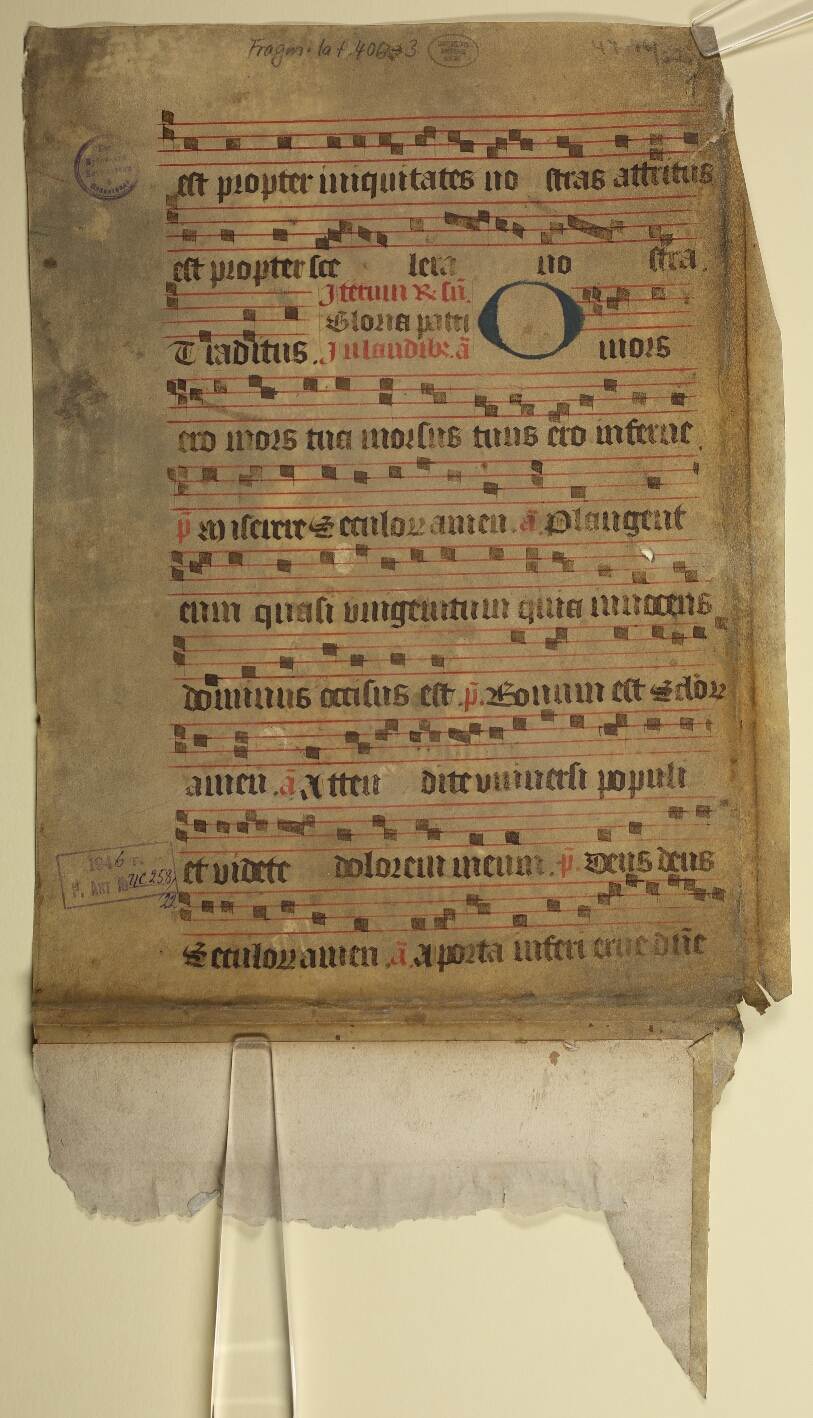 Fragm. lat. 406
est propter iniquitates no stras attritus
est propter sce lera no stra.
Iterum ℟ sīi.
Gloria patri
Traditus. In laudibꝰ. ā O mors
ero mors tua morsus tuus ero inferne.
p̄ Miserere Seculoꝝ amen. ā Plangent
eum quasi vnigenitum quia innocens
dominus occisus est. p̄. Bonum est Scloꝝ
amen. ā Atten dite vniuersi populi
et videte dolorem meum. p̄. Deus deus
1946 г.
Р. Акт № УС 258/22
Seculoꝝ amen. ā. A porta inferi erue dn̄e